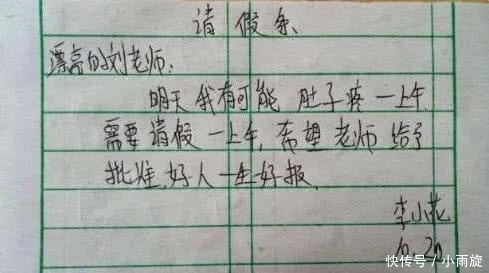 请假条
漂亮的刘老师:
明天我有可能肚子疼一上午,
需要请假一上午,希望老师给予
批准,好人一生好报,
李小花
快传号/小雨旋